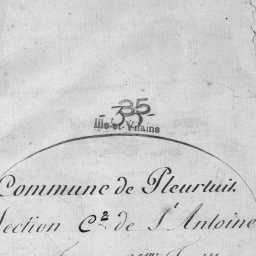 35
Ille-et-Vilaine
Commune de Pleurtuit.
Section C.e de St Antoine